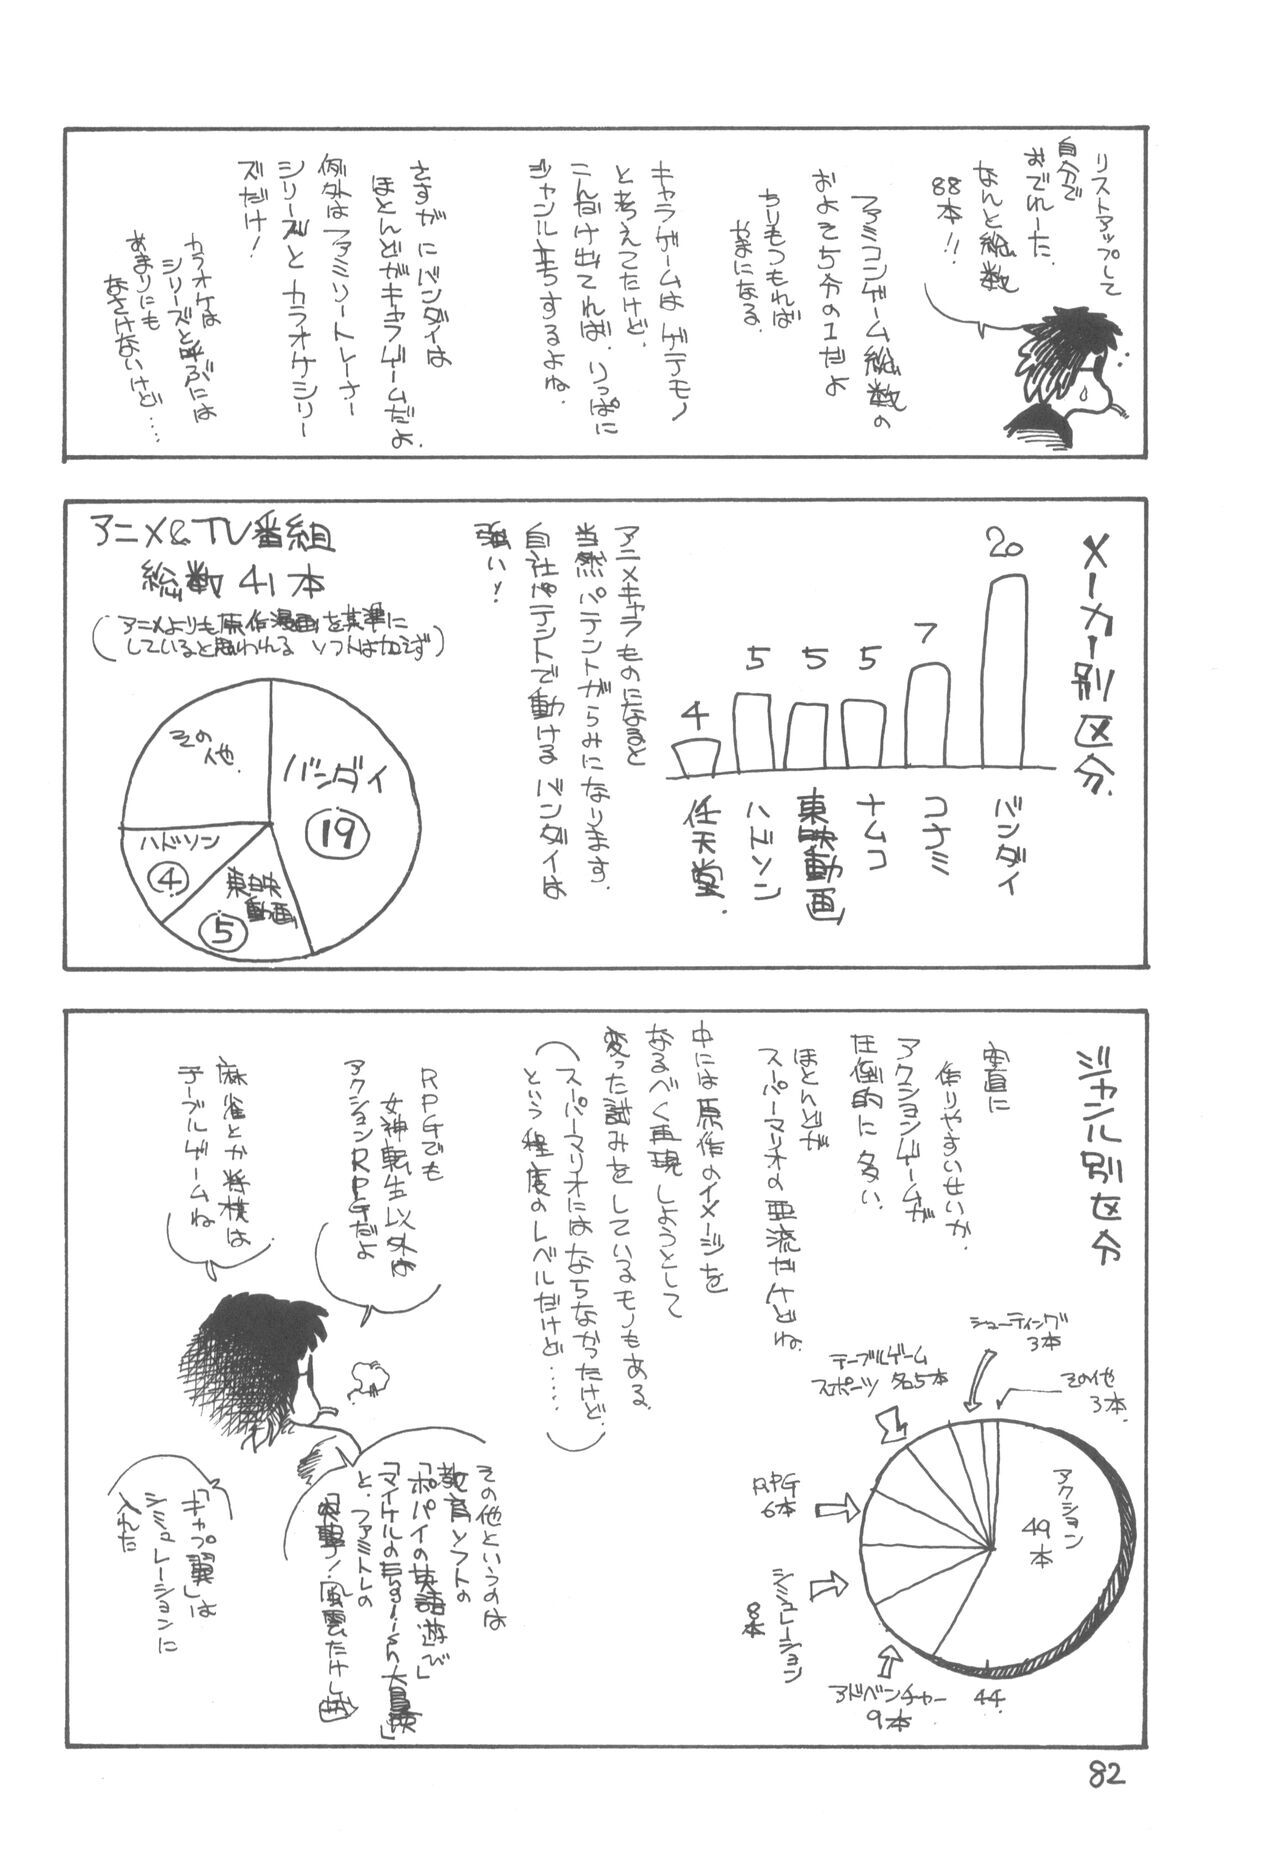 リストアップして
自分で
おでれーた.
なんと総数
88本!!
ファミコンゲーム総数の
およそ5分の1だよ
ちりもつもれば
やまになる.
キャラゲームは ゲテモノ
と考えてたけど、
こんだけ出てれば、りっぱに
ジャンル立ちするよね.
さすが にバンダイは
ほとんどがキャラゲームだよ.
例外はファミリートレーナー
シリーズと カラオケシリー
ズだけ!
カラオケは
シリーズと呼ぶには
あまりにも
なさけないけど….
メーカー別区分.
20
7
5
5
5
4
バンダイ
コナミ
ナムコ
東映動画
ハドソン
任天堂.
アニメキャラものになると
当然パテントがらみになります.
自社パテントで動けるバンダイは
強い!
アニメ&TV番組
総数 41本
(アニメよりも原作漫画を基準に
していると思われる ソフトは加えず)
バンダイ
19
東映
動画
5
ハドソン
4
その
他.
ジャンル別区分
率直に
作りやすいせいか.
アクションゲームが
圧倒的に多い.
ほとんどが
スーパーマリオの亜流だけどね.
中には原作のイメージを
なるべく再現しようとして
変った試みをしているモノもある.
(スーパーマリオにはならなかったけど.
という程度のレベルだけど……)
シューティング
3本
その他
3本.
テーブルゲーム
スポーツ 各5本
RPG
6本
シミュレーション
8本
アドベンチャー
9本
44.
アクション
49本
RPGでも
女神転生以外は
アクションRPGだよ
麻雀とか将棋は
テーブルゲームね
その他というのは
教育ソフトの
「ポパイの英語遊び」
「マイケルのEnglish大冒険」
と、ファミトレの
「突撃!風雲たけし城」
「キャプ翼」は
シミュレーションに
入れた
82